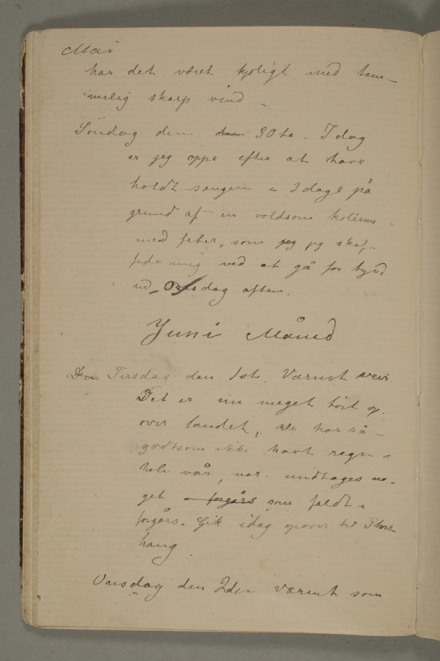 Mai
har det været kjøligt med tem-
melig skarp vind.
Søndag den 30te. Idag
er jeg oppe efter at have
holdt sengen i 3 dage på
grund af en voldsom
med feber, som jeg skaf-
fede mig ved at gå for tynd
ud Onsdag aften.
Juni Måned
Den Tirsdag den 1ste. Varmt veir
Det er nu meget tørt op
over landet, har så-
godtsom ikke havt regn i
hele vår, når undtages no-
get forgårs som faldt i
forgårs. Gik idag opover til
hang
Onsdag den 2den Varmt som